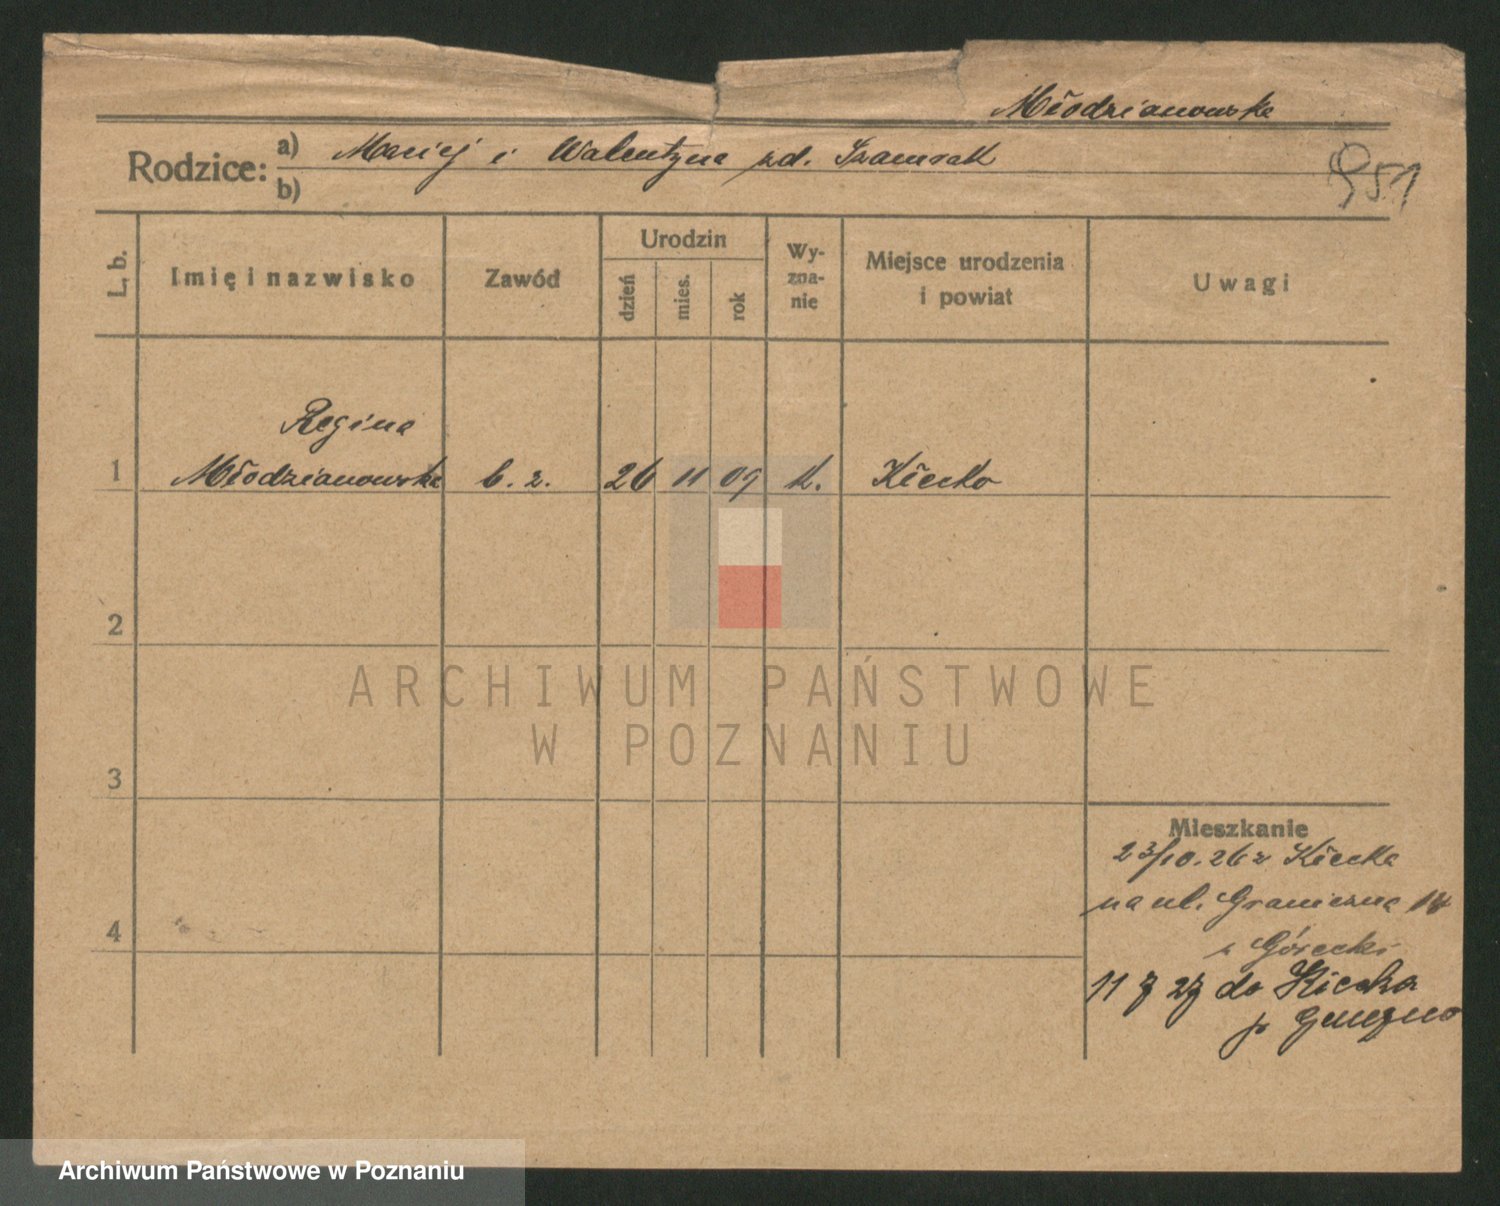 Młodzianowska
Rodzice:
a) Maciej i Walentyna zd. Szamrak
b)
951
L. b.
Imię i nazwisko
Zawód
Urodzin
dzień
mies.
rok
Wy-
zna-
nie
Miejsce urodzenia
i powiat
Uwagi
Regina
1 Młodzianowska b. z. 26 11 09 k. Kłecko
2
3
4
Mieszkanie
23/10. 26 z Kłecka
na ul. Graniczną 14
Górecki
11 7 27 do Kłecka
p Gniezno
ARCHIWUM PAŃSTWOWE
W POZNANIU
Archiwum Państwowe w Poznaniu